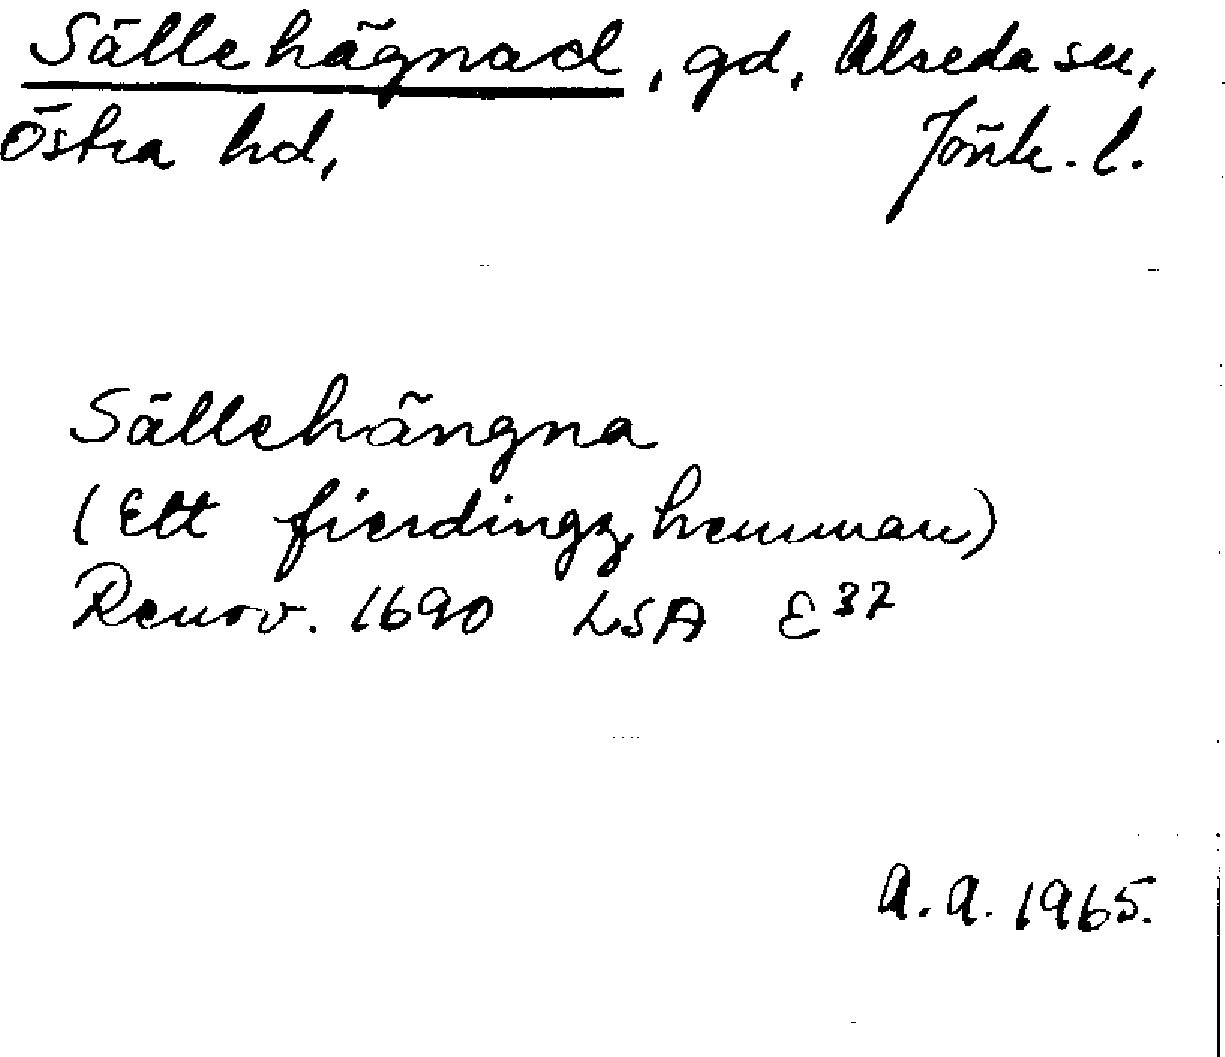 Sällehägnad, gd, Alseda sn,
Östra hd, Jönk. l.
Sällehängna
(Ett fierdingz hemman)
Renov. 1690 LSA E 37
A.A. 1965.